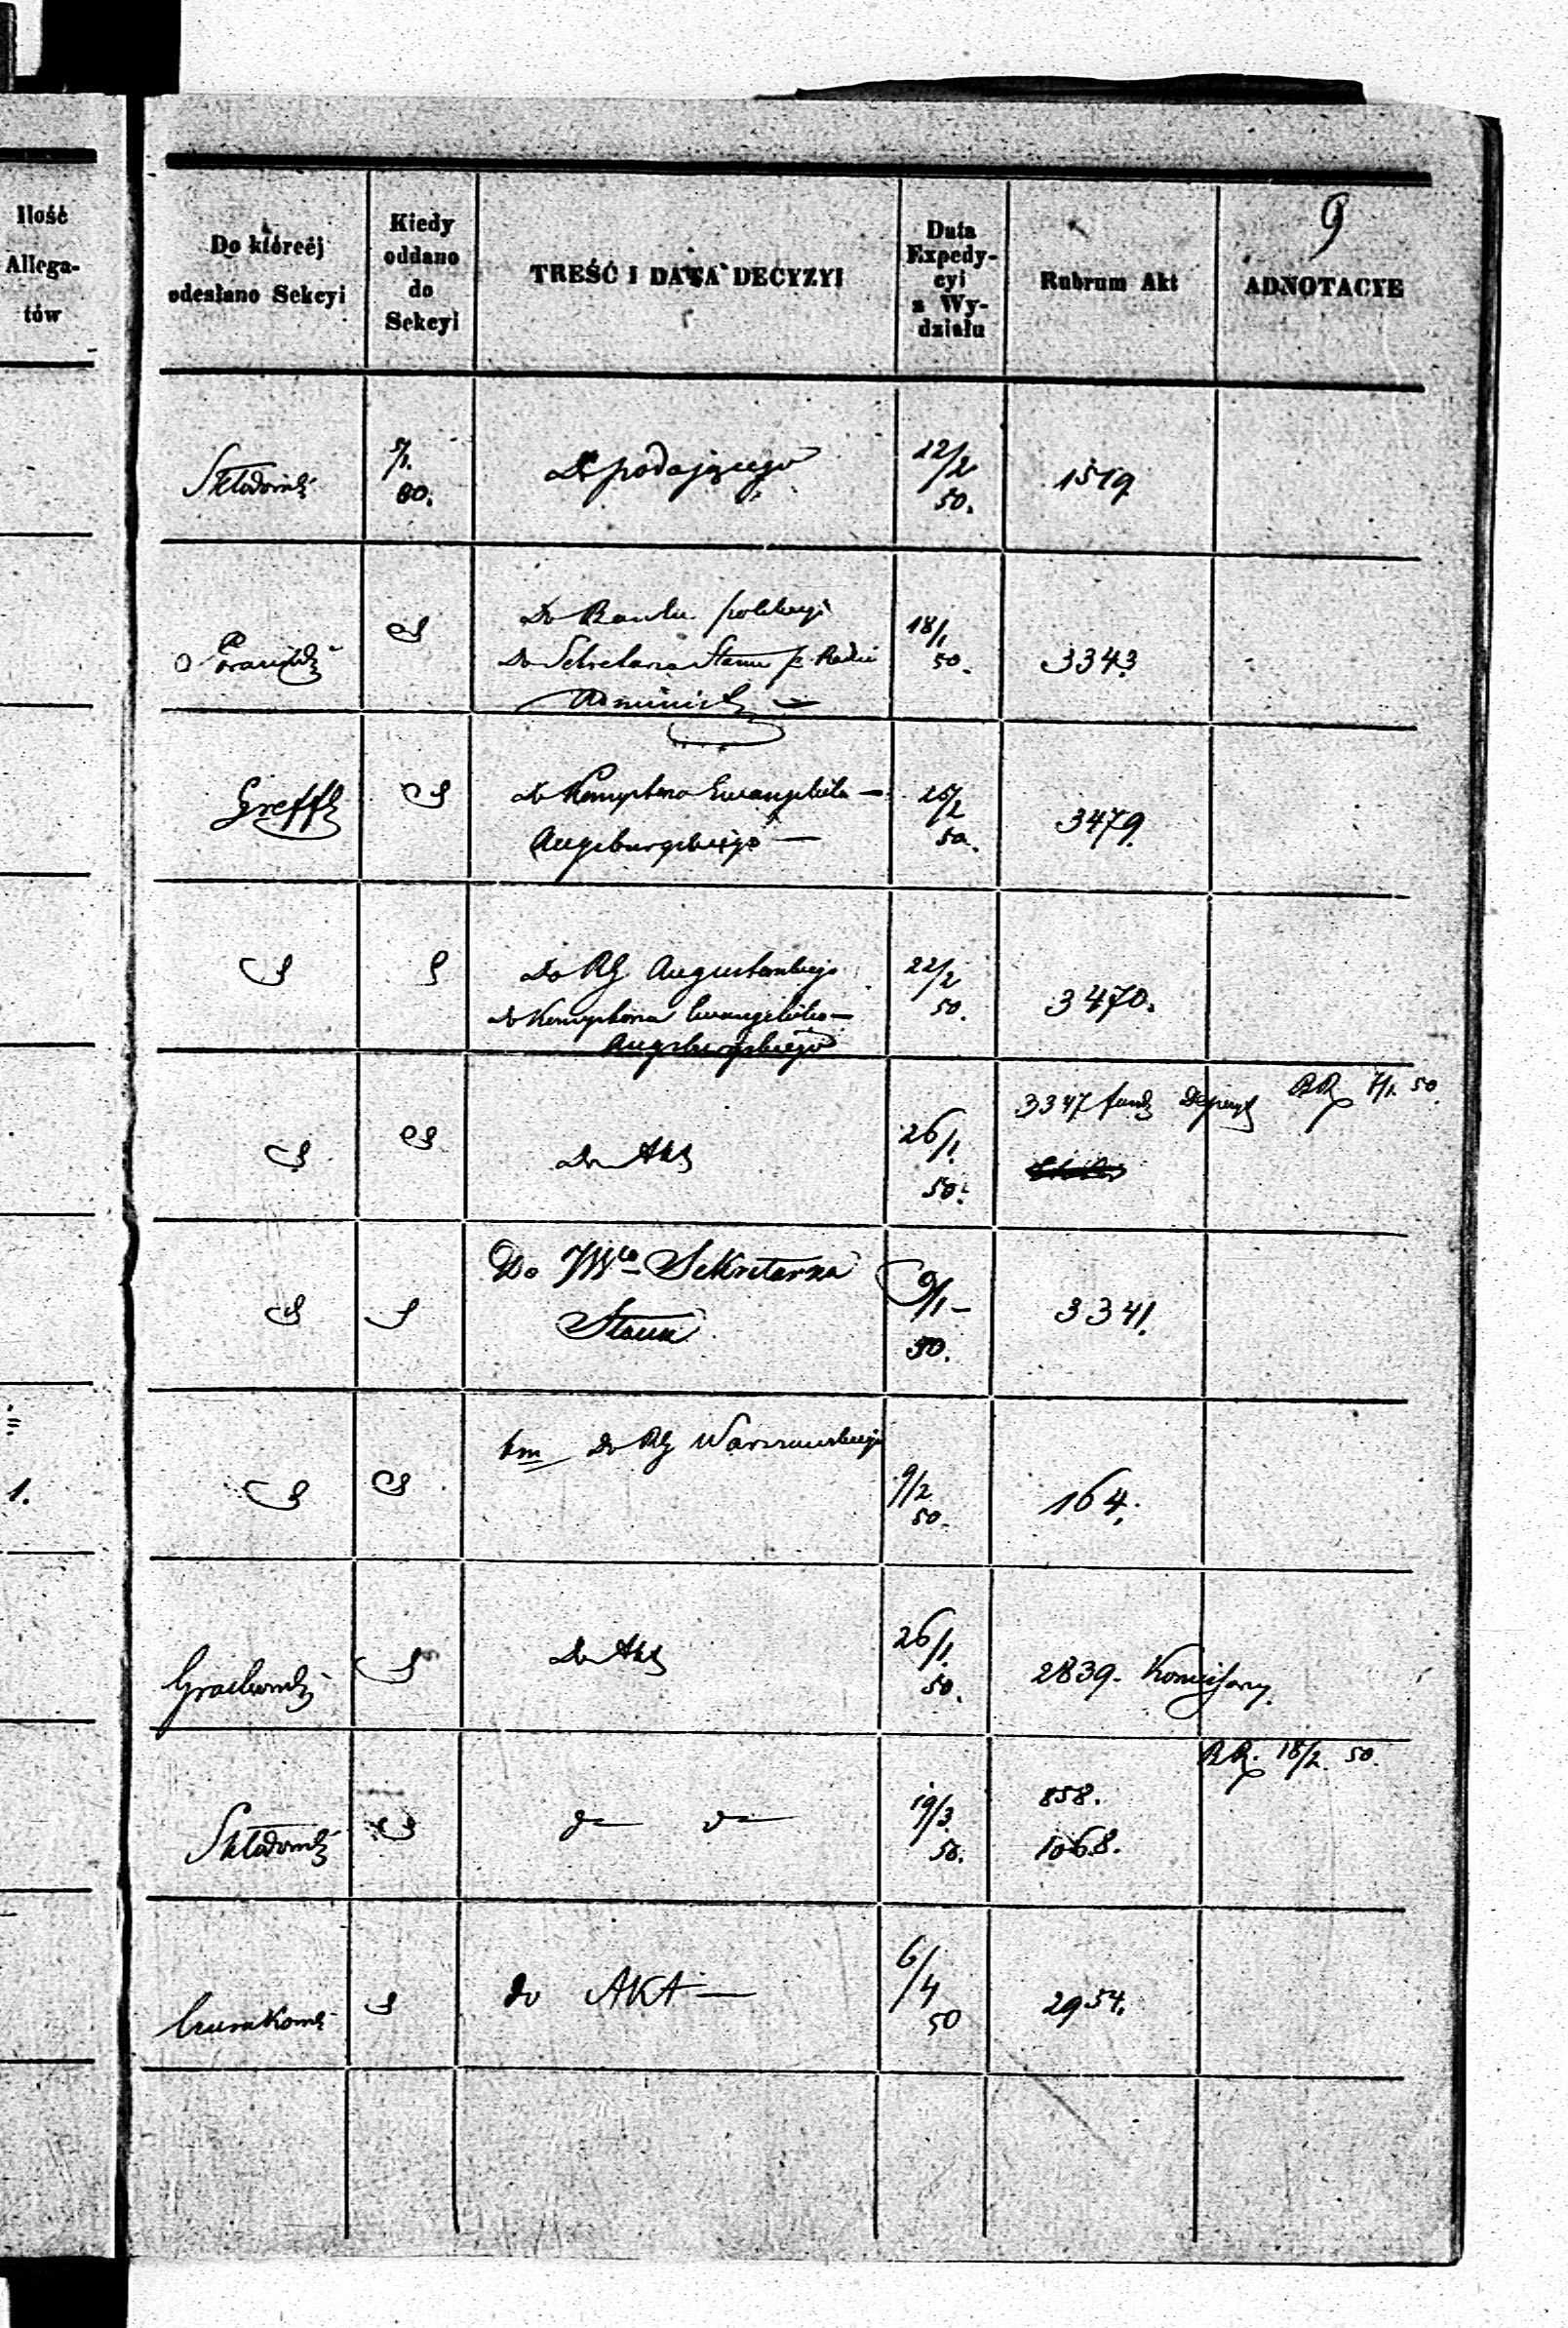 Ilość
Allega-
tów
Do któréj
odesłano Sekcyi
Kiedy
oddano
do
Sekcyi
TREŚĆ I DATA DECYZYI
Data
Expedy-
cyi
z Wy-
działu
Rubrum Akt
9
ADNOTACYE
Skłodowski
5/1.
50.
Do podającego
22/2
50.
1519
Do Banku polskiego
Do Sekretarza Stanu p. Radzie
Administ
18/1
50.
3343
Greffe
Do Konsystorza Ewangelicko —
Augsburgskiego —
25/2
50.
3479.
Do RG Augustowskiego
do Konsystorza Ewangelicko —
Augsburgskiego
22/2
50.
3470.
Do Akt
26/1.
50.
3347 fund
RR 7/1. 50.
Do JWgo Sekretarza
Stanu
9/1 —
50.
3341.
1.
Do RG Warszawskiego
9/2
50.
164.
Grochowski
Do Akt
26/1.
50.
2839. Komissarz.
Skłodowski
do — do —
19/3.
50.
858.
1068.
RR. 18/2. 50.
do AKT —
6/4
50
2954.